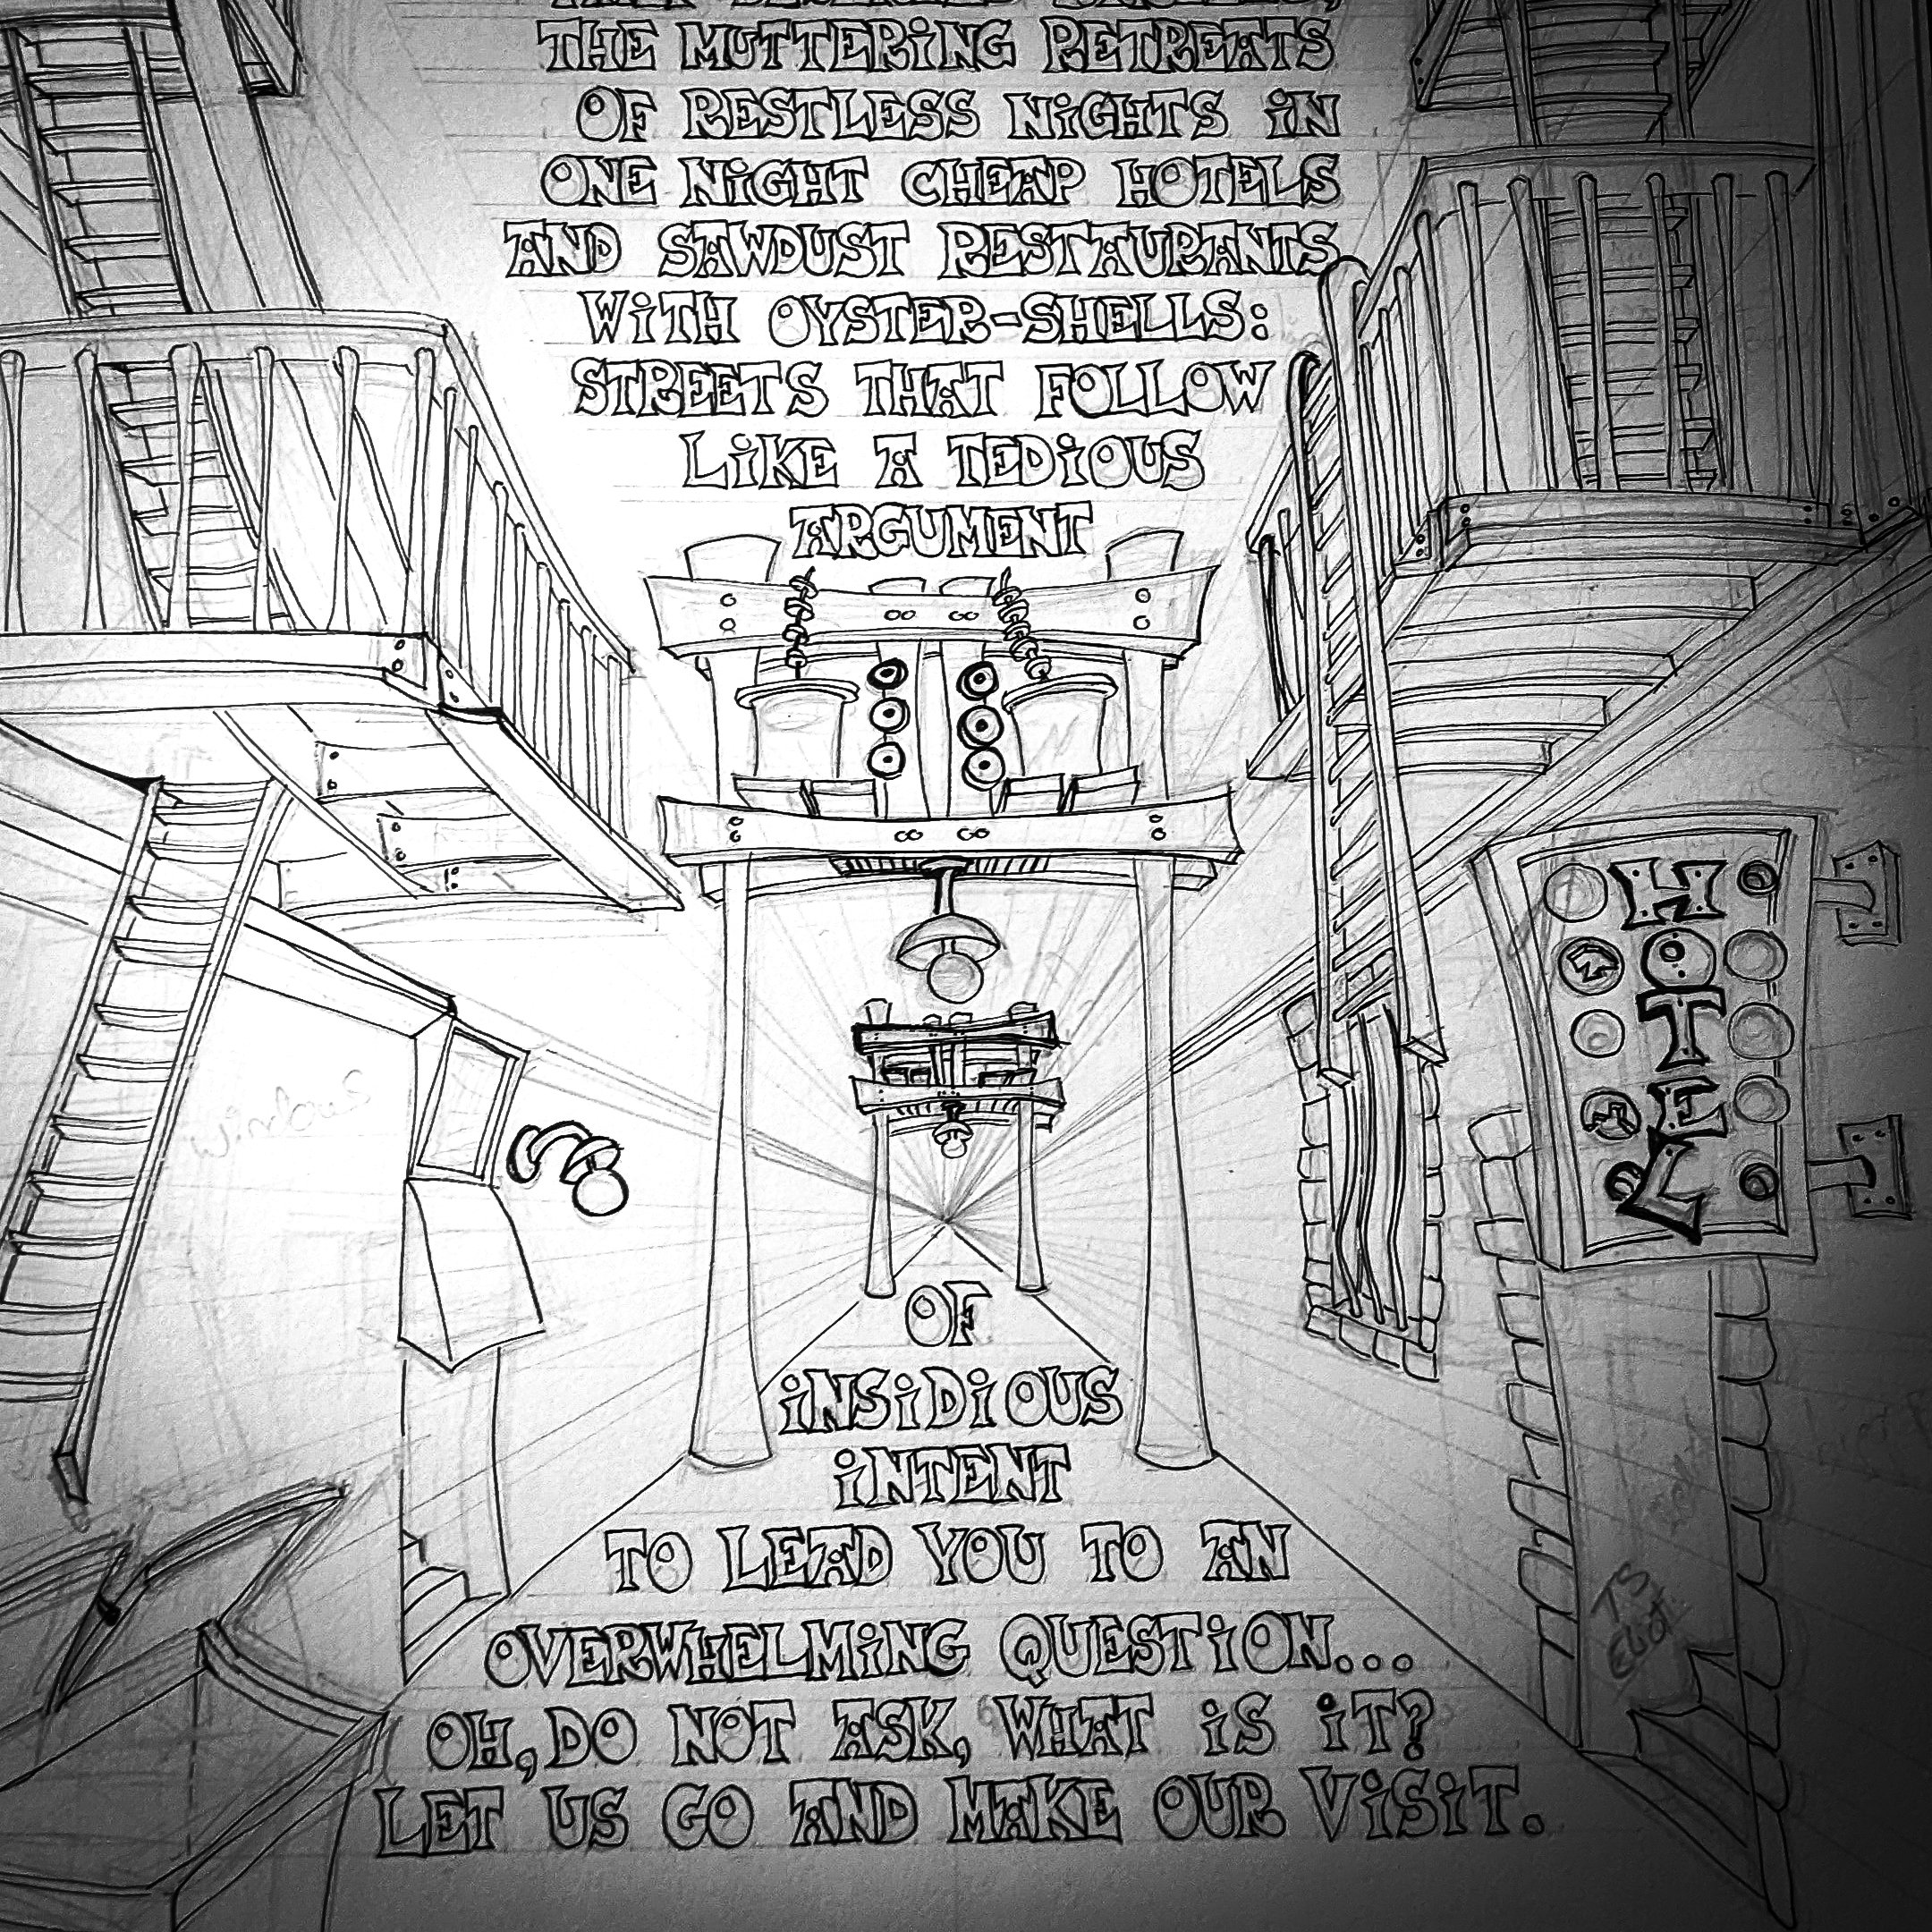 THE MUTTERING RETREATS
OF RESTLESS NIGHTS IN
ONE NIGHT CHEAP HOTELS
AND SAWDUST RESTAURANTS
WITH OYSTER-SHELLS:
STREETS THAT FOLLOW
LIKE A TEDIOUS
ARGUMENT
HOTEL
OF
INSIDIOUS
INTENT
TO LEAD YOU TO AN
OVERWHELMING QUESTION...
OH, DO NOT ASK, WHAT IS IT?
LET US GO AND MAKE OUR VISIT.
TS
Eliot